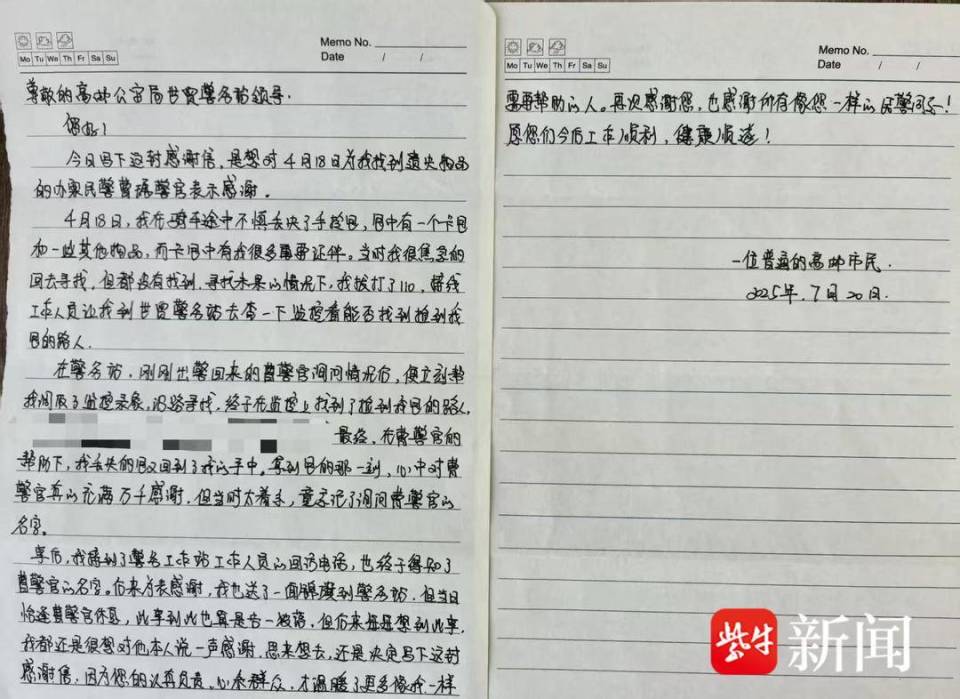 Memo No.
Mo Tu We Th Fr Sa Su
Date / /
尊敬的高邮公安局世贸警务站领导:
您好!
今日写下这封感谢信,是想对4月18日为我找到遗失物品
的办案民警曹璠警官表示感谢。
4月18日,我在骑车途中不慎丢失了手提包,包中有一个卡包
和一些其他物品,而卡包中有我很多重要证件。当时我很焦急的
回去寻找,但都没有找到。寻找未果的情况下,我拨打了110,接线
工作人员让我到世贸警务站去查一下监控看能否找到捡到我
包的路人.
在警务站,刚刚出警回来的曹警官询问情况后,便立刻帮
我调取了监控录像,沿路寻找,终于在监控上找到了捡到我包的路人,
最终,在曹警官的
帮助下,我丢失的包又回到了我的手中。拿到包的那一刻,心中对曹
警官真的充满万千感谢,但当时太着急,竟忘记了询问曹警官的
名字。
事后,我接到了警务工作站工作人员的回访电话,也终于得知了
曹警官的名字。后来为表感谢,我也送了一面锦旗到警务站,但当日
恰逢曹警官休息,此事到此也算是告一段落,但后来每每想到此事,
我都还是很想对他本人说一声感谢,思来想去,还是决定写下这封
感谢信,因为您的认真负责,心系群众,才温暖了更多像我一样
Memo No.
Mo Tu We Th Fr Sa Su
Date / /
需要帮助的人。再次感谢您,也感谢所有像您一样的民警同志!
愿您们今后工作顺利,健康顺遂!
一位普通的高邮市民.
2025年.7月20日.
紫牛新闻